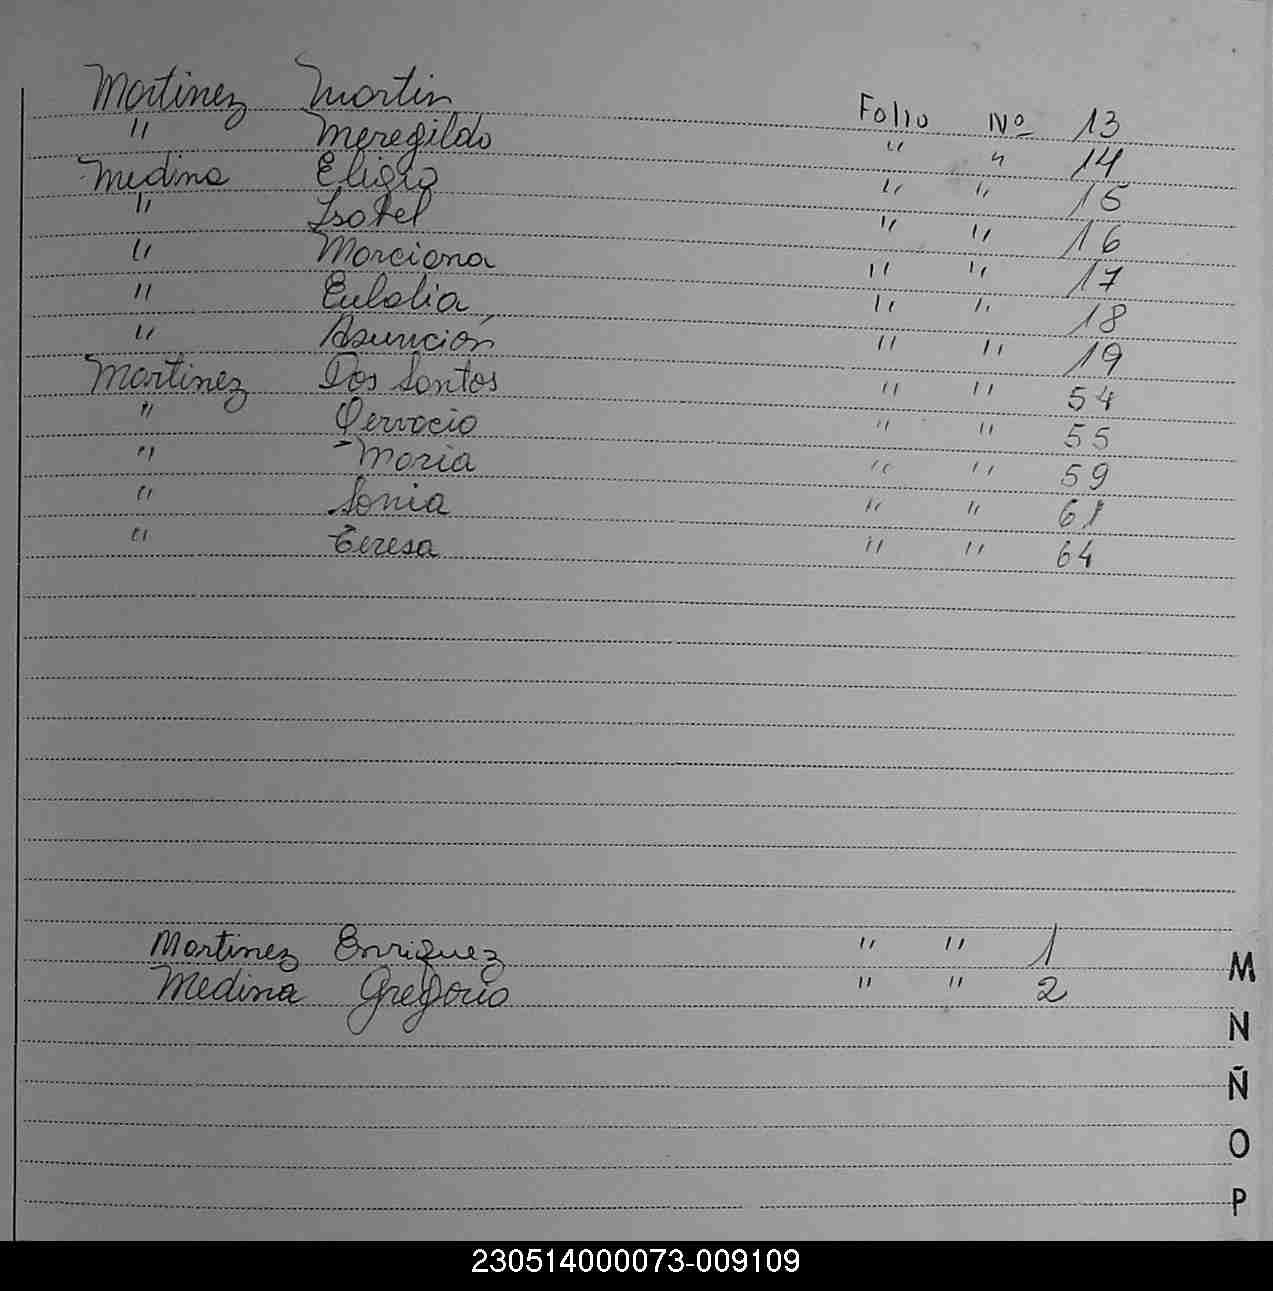 Martinez Martin Folio Nº 13
" Meregildo " " 14
Medina Eligio " " 15
" Isabel " " 16
" Marciana " " 17
" Eulalia " " 18
" Asunción " " 19
Martinez Dos Santos " " 54
" Gervacio " " 55
" Maria " " 59
" Sonia " " 61
" Teresa " " 64
Martinez Enriquez " " 1
Medina Gregorio " " 2
M
N
Ñ
O
P
230514000073-009109